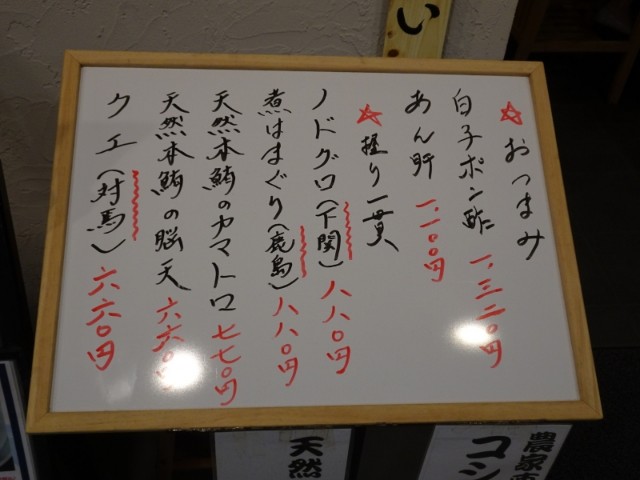 い
☆おつまみ
白子ポン酢 一、三二〇円
あん肝 一、一〇〇円
☆握り一貫
ノドグロ(下関) 八八〇円
煮はまぐり(鹿島) 八八〇円
天然本鮪のカマトロ 七七〇円
天然本鮪の脳天 六六〇円
クエ(対馬) 六六〇円
農家直
コシ
天然